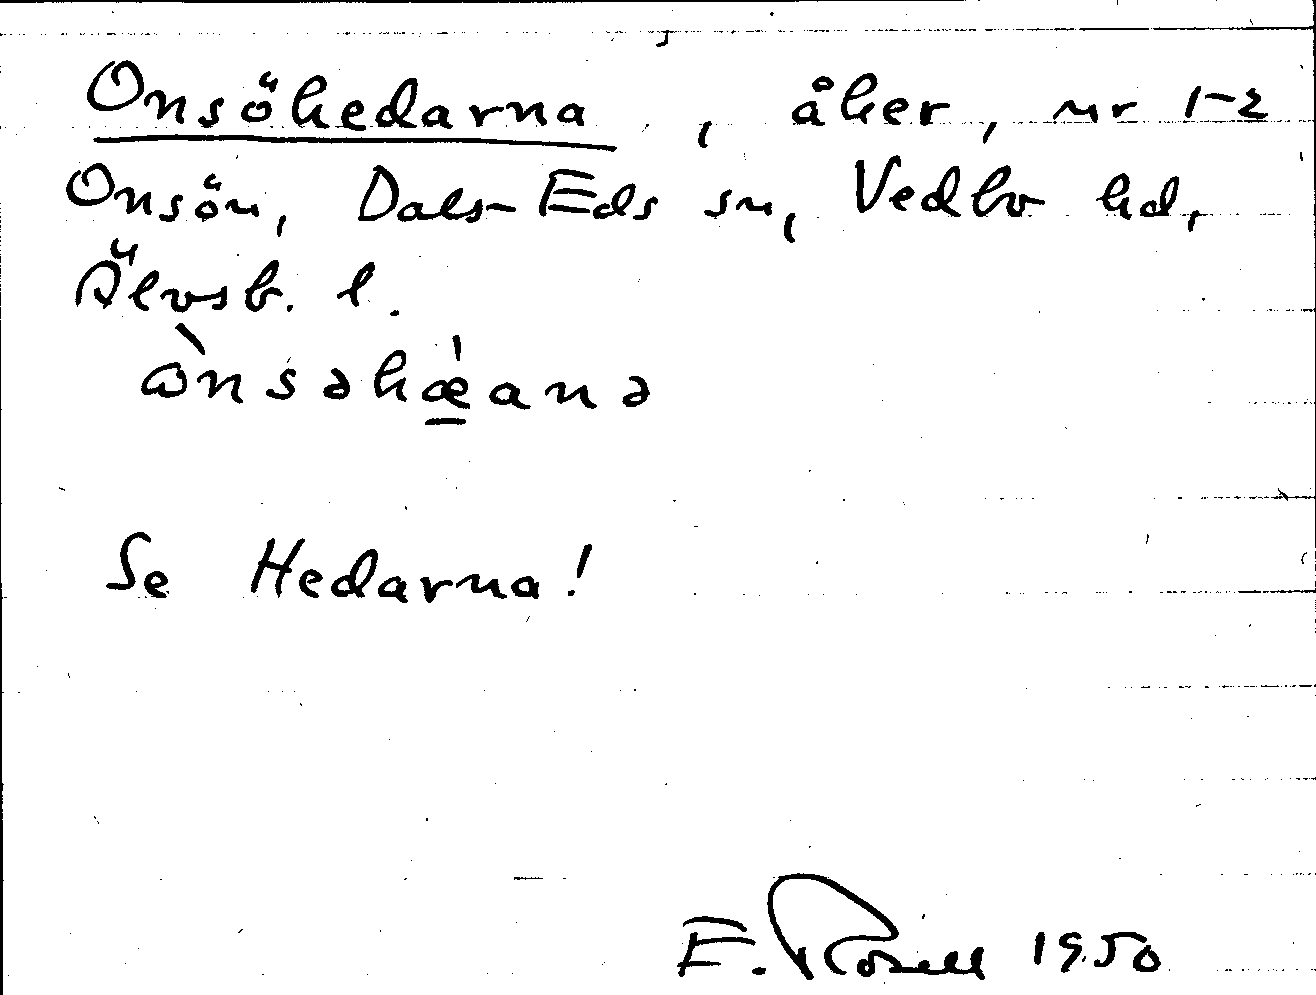 Onsöhedarna, åker, nr 1-2
Onsön, Dals-Eds sn, Vedbo hd,
Älvsb. l.
ὼnsəhæ̲̍anə
Se Hedarna!
E. Rosell 1950